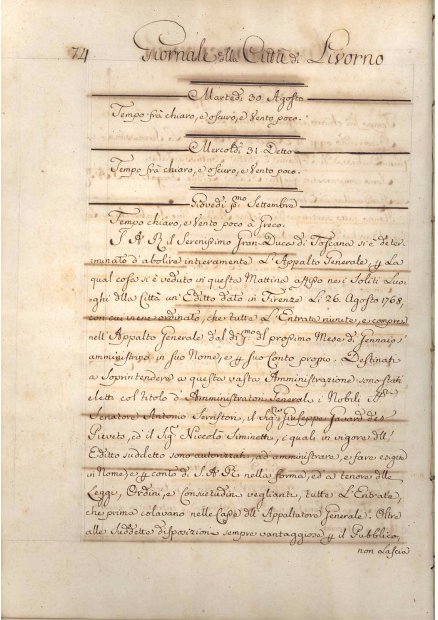 74 Giornale della Città di Livorno
Martedì 30. Agosto
Tempo frà chiaro, e oscuro, e Vento poco.
Mercoldì 31. Detto
Tempo frà chiaro, e oscuro, e Vento poco.
Giovedì p:mo Settembre
Tempo chiaro, e Vento poco à Greco.
S. A. R. il Serenissimo Gran Duca di Toscana si è deter-
minato d'abolire intieramente L'Appalto Generale, p La
qual cosa si è veduto in questa Mattina affisso nei Soliti Luo-
ghi dlla Città un' Editto dato in Firenze Li 26. Agosto 1768,
con cui viene ordinato, che tutte L'Entrate riunite, e comprese
nell'Appalto Generale dal dì p:mo del prossimo Mese di Gennaio
amministrino in suo Nome, e p suo Conto proprio. Destinati
a Soprintendere a questa vasta Amministrazione sono stati
eletti col titolo d'Amministratori Generali i Nobili
Senatore Antonio Serristori, il Sig:e Giuseppe Gavard des
Pivets, ed il Sig:e Niccolò Siminetti, i quali in vigore dll'
Editto suddetto sono autorizzati, ad amministrare, e fare esigere
in Nome, e p conto di S. A. R. nella forma, ed a tenore dlle
Leggi, Ordini, e Consuetudini veglianti, tutte L'Entrate,
che prima colavano nelle Casse dll'Appaltatore Generale. Oltre
alle suddette disposizioni sempre vantaggiose p il Pubblico,
non Lascia